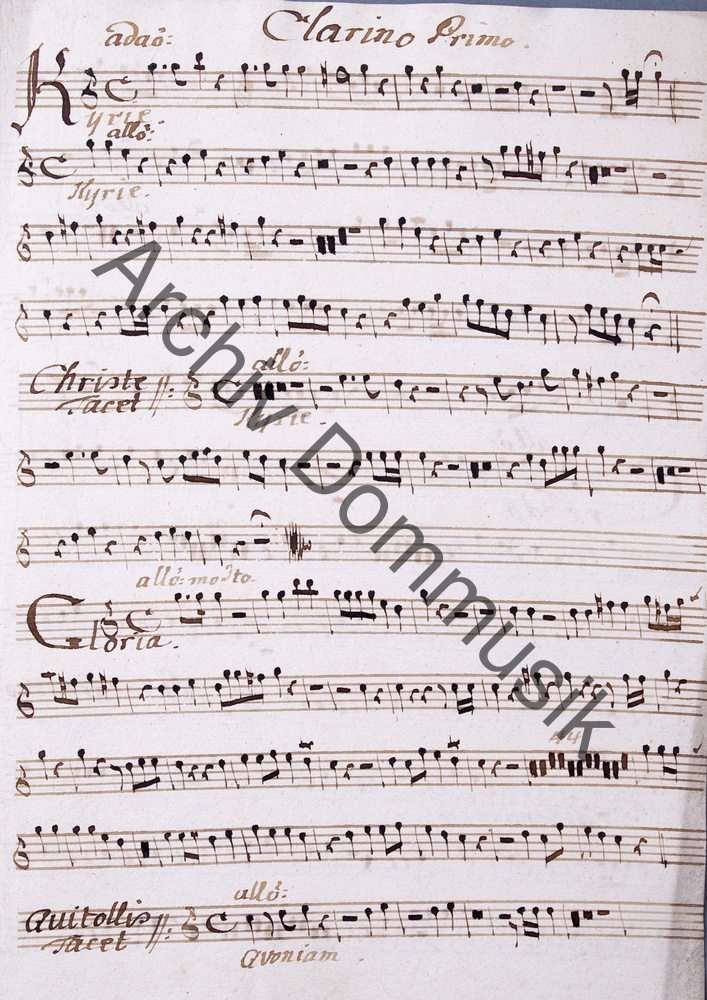 Clarino Primo.
adaö:
Kyrie.
allö:
Kyrie.
Christe
Tacet
allö:
Kyrie.
allö: mod̊to.
Gloria.
44
Quitollis
Tacet
allö:
Qvoniam
Archiv Dommusik